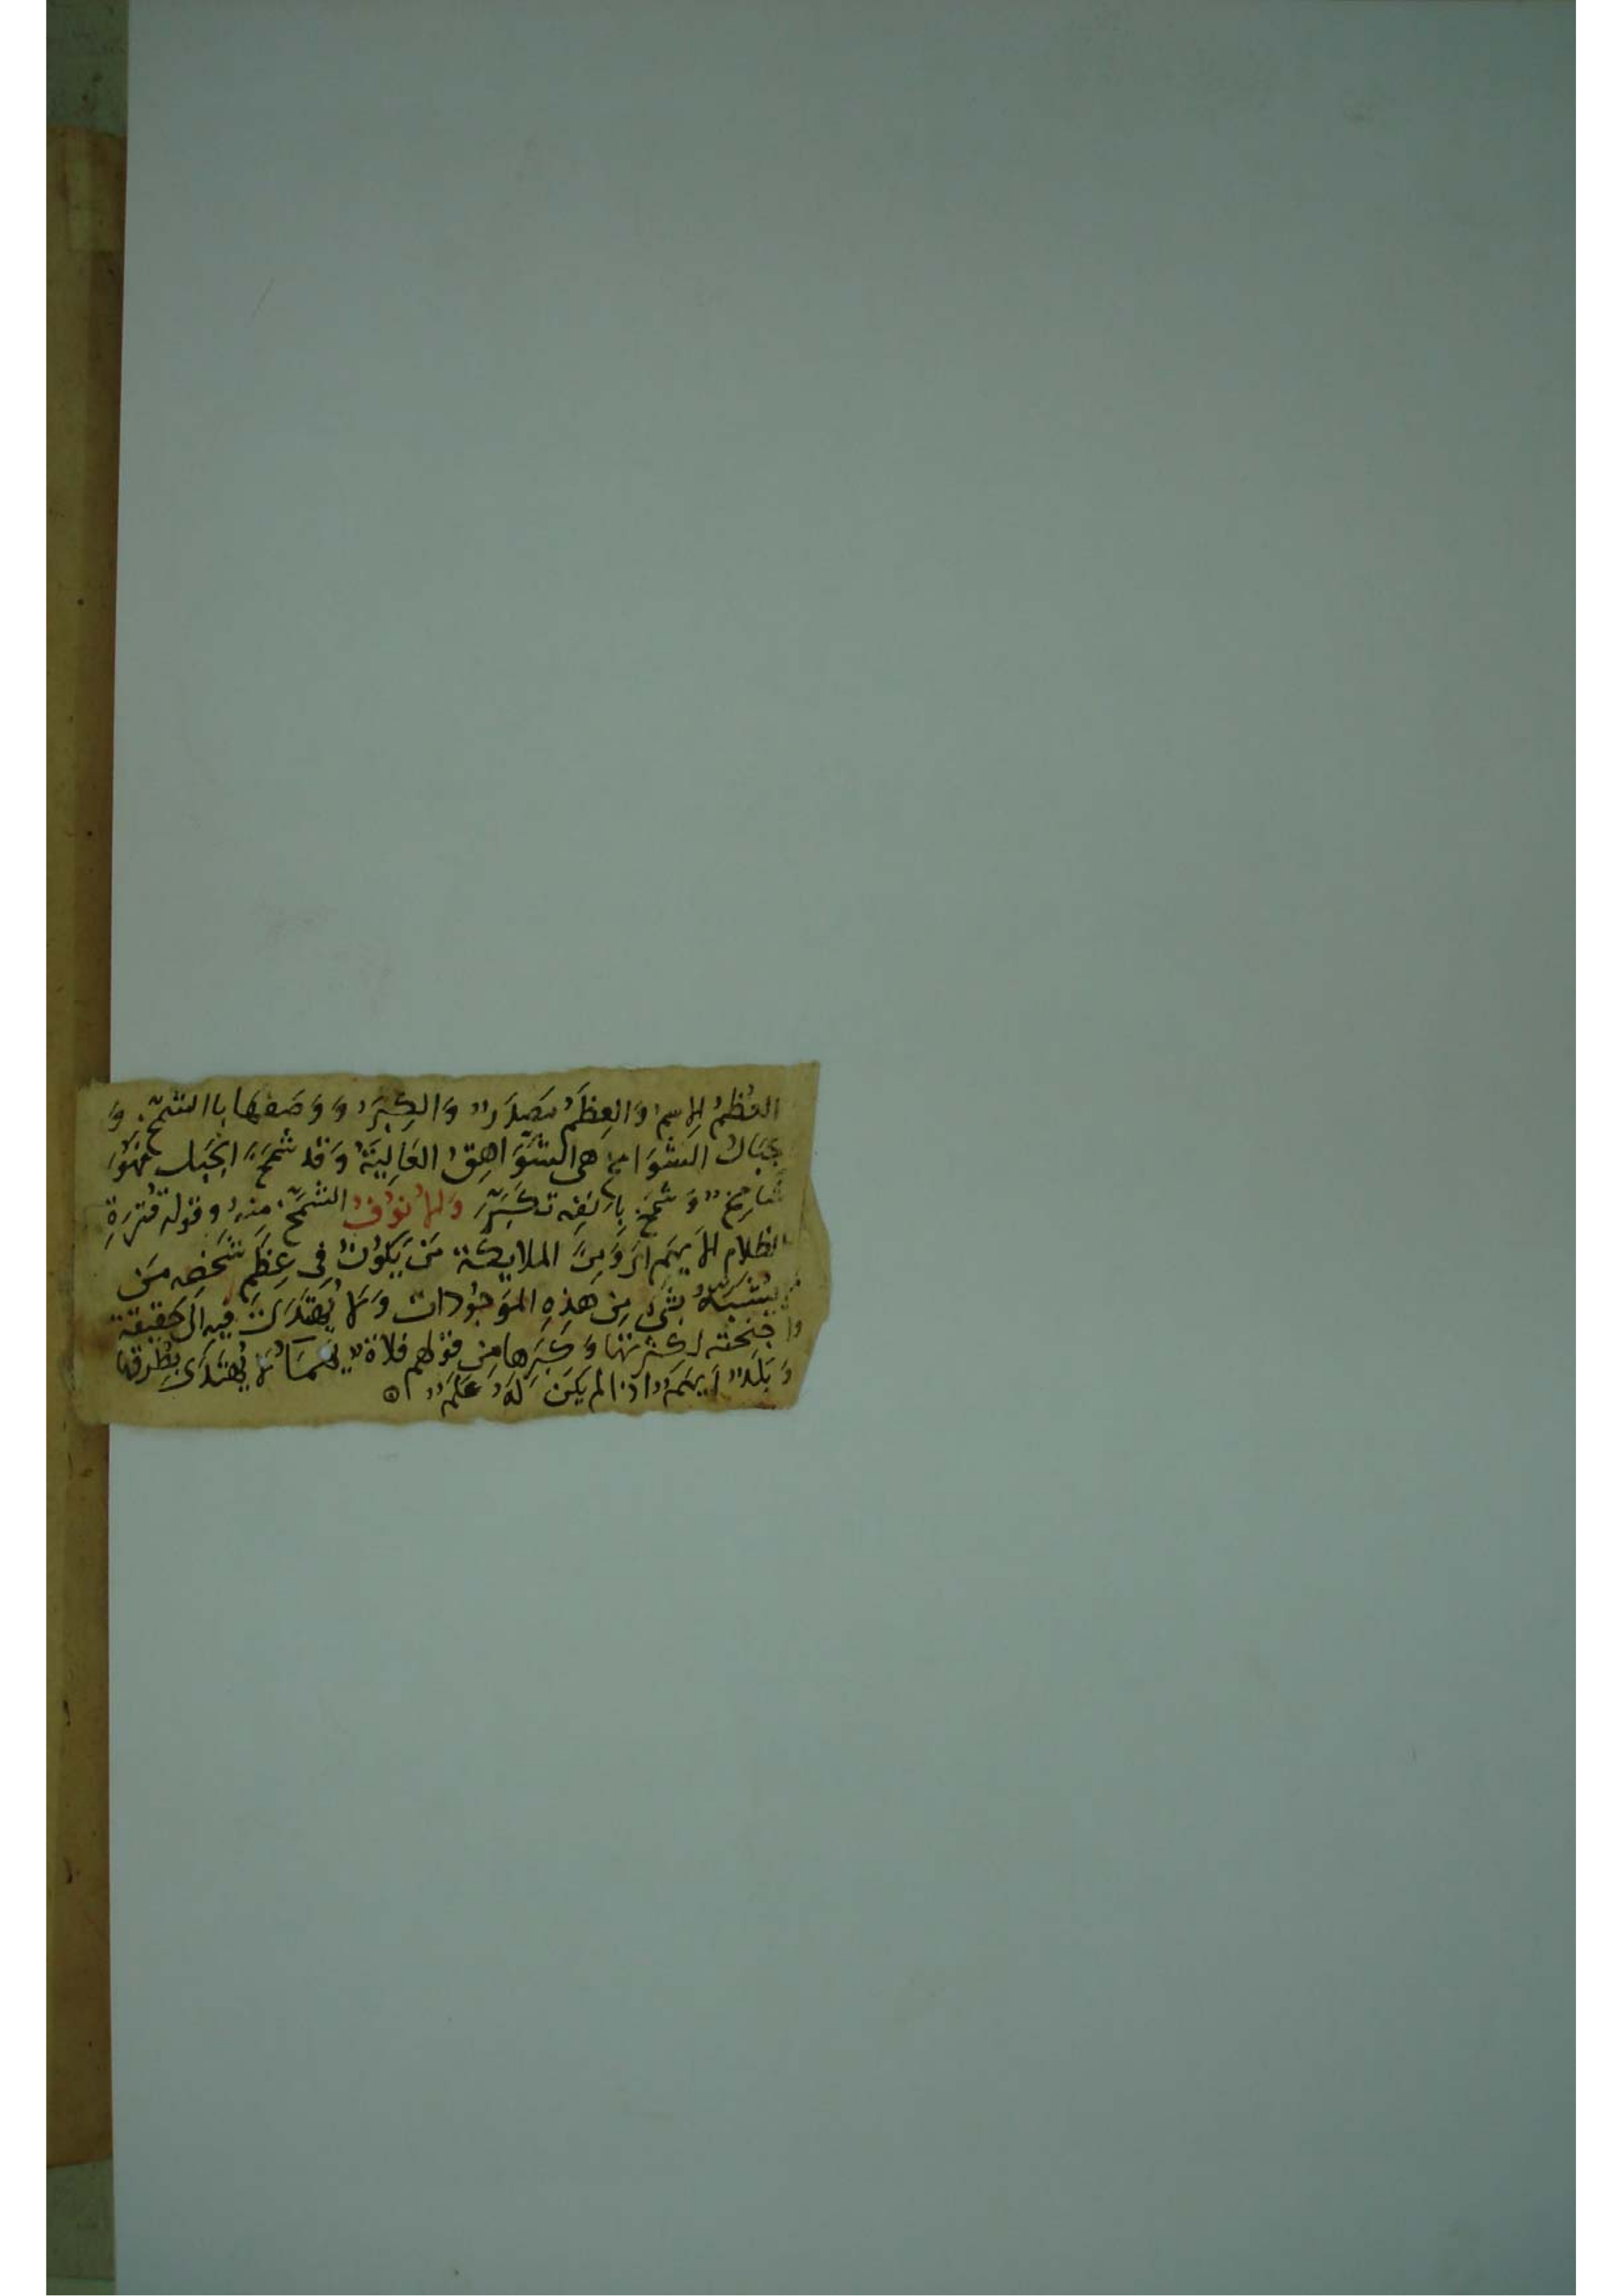 العُظْمُ الاسمُ وَالعِظَمُ مَصْدَرٌ وَالكِبَرُ وَوَصَفَهَا باالشمّخِ وَ
جِبَالُ الشوَامخ هي الشَوَاهِقُ العَالِيَةُ وَقد شمَخَ الجَبلُ فهْوَ
شامِخٌ وَشمَخَ بِانفِه تكَبَّرَ وَالانُوْفُ الشمَّخُ منهُ وقوله قُترَةِ
الظلام الايهَم ارَ وَمِنَ الملايكَة مَن يَكوُنُ فِي عِظَمِ شَخصِه مَن
يُشبَّهُ بشَيءٍ مِن هَذِهِ المَوجُودَات وَلَا يُهْتَدَى فيه الَى حَقيقة
واجنحَته لكثرتهَا وَكِبَرِهَا مِن قوْلهم فلَاةٌ يَهمَاءُ لَا يُهتدَى بِطُرقِهَا
وَبَلَدٌ اَيهَمُ اذا لم يَكن لَهُ عَلَمٌ